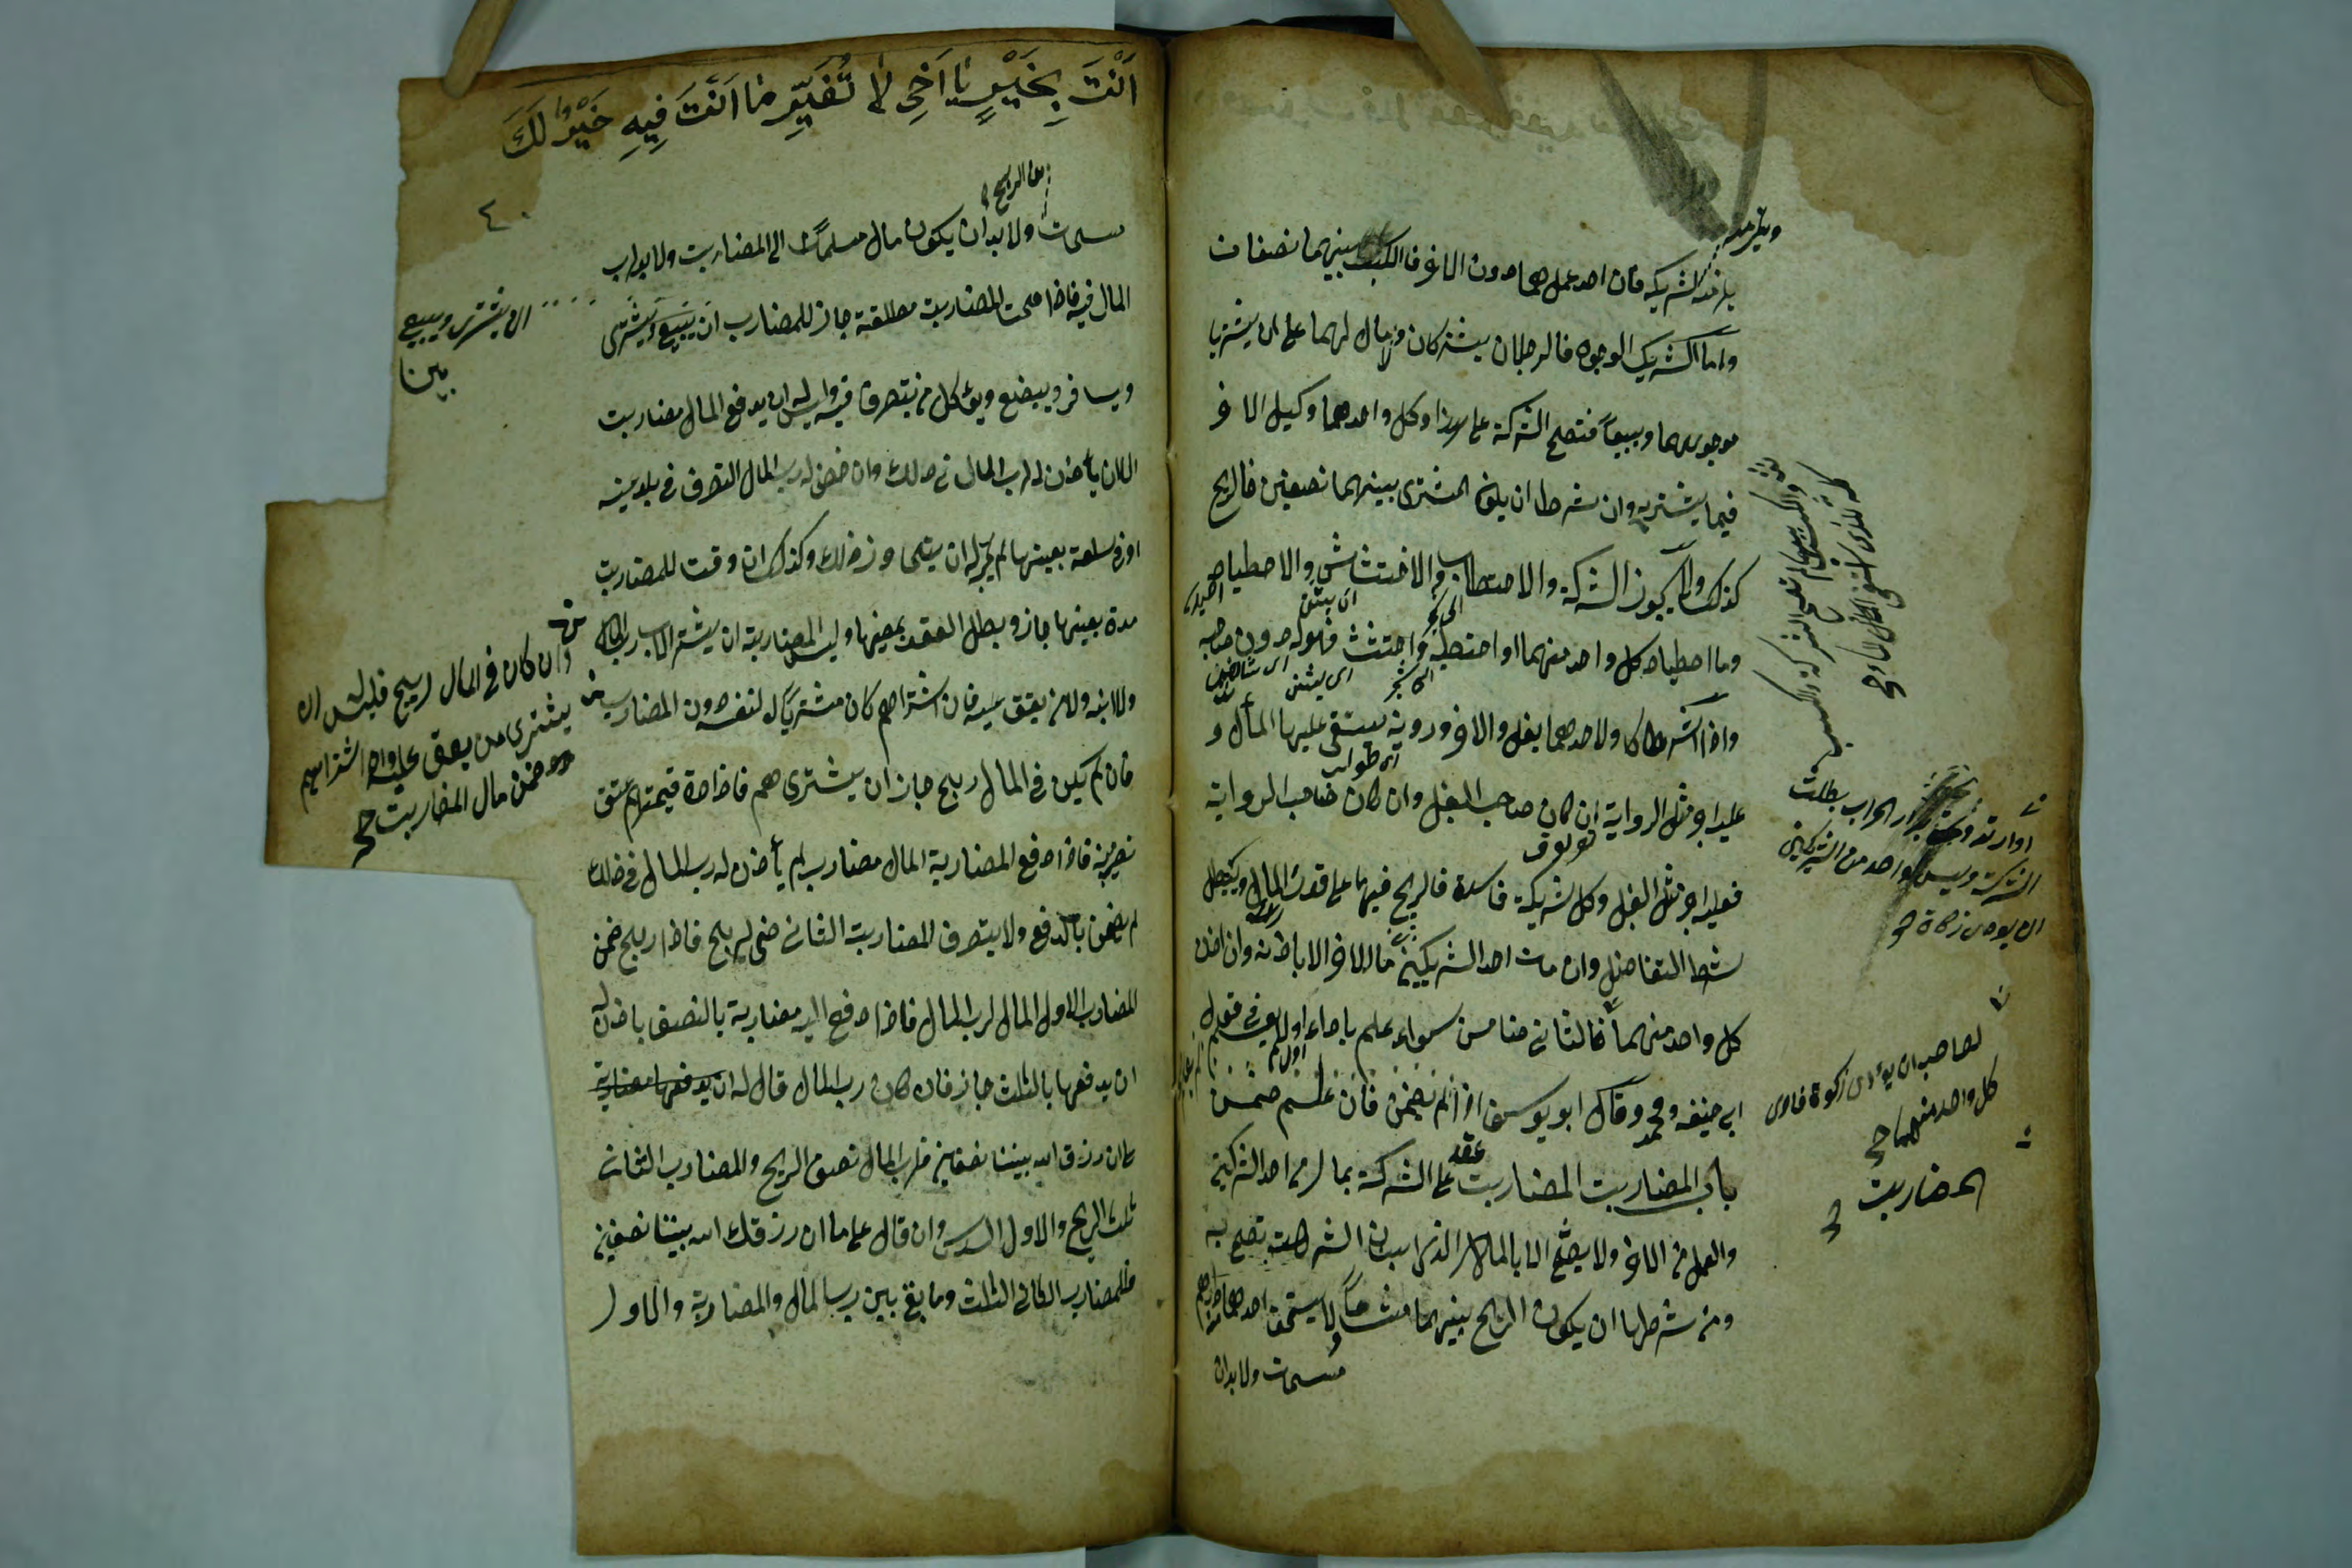 ويلزمه
يلزم شريكه فان احد عمل هما دون الاخر فالكسب بينهما نصفان
واما الشريك الوجوه فالرجلان يشتركان ولا مال لهما على ان يشتريا
بوجوههما ويبيعا فتصح الشركة على هذا وكل واحدهما وكيل الاخر
فيما يشتريه وان شرطا ان يكون المشترى بينهما نصفين فالربح
كذلك ولا يجوز الشركة والاحتطاب والاحتشاش والاصطياد
وما اصطياد كل واحد منهما او احتطبه واحتشش فهو له دون صاحبه
واذا اشتركا ولاحدهما بغل والاخر دوية يستقى عليها المال و
عليه اجر مثل الرواية ان كان صاحب البغل وان كان صاحب الرواية
فعليه اجر مثل البغل وكل شريكة فاسدة فالربح فيها على قدر المال ويبطل
شرط التفاضل وان مات احد الشريكين مال الاخر الا باذنه وان اذن
كل واحد منهما فالثانى ضامن سواء علم باداء اول او لم يعلم فى قول
ابى حنيفه ومحمد وقال ابو يوسف اذا لم يضمن فان علم ضمن
باب المضاربت المضاربت عقد على الشركة بمال من احد الشركين
والعمل من الاخر ولا يصح الا بالمال الذى بينا ان الشركت تصح به
ومن شرطها ان يكون الربح بينهما مشاعا لا يستحق احدهما دراهم
مسمات ولا بدان
اوارتد ولحق بدار الحراب بطلت
الشركت وليس لواحد من الشريكين
ان يودى زكاة
لصاحبه ان يؤدى زكوة فادى
كل واحد منهما
المضاربت
اَنْتَ بِخَيْرٍ يَا اَخِى لَا تُغَيِّرِ مَا اَنْتَ فِيهِ خَيْرٌ لَكَ
من الربح
مسمات ولا بد ان يكون مال مسلما الى المضاربت ولا يد لرب
المال فيه فاذا صحت المضاربت مطلقة جاز للمضارب ان يبيع ويشترى
ويسافر ويبضع ويؤكل من يتصرف فيه وليس له ان يدفع المال مضاربت
الا ان يأذن له رب المال فى ذلك وان خص له رب المال التصرف فى بلد بعينه
او فى سلعة بعينها لم يجز له ان يتجاوز ذلك وكذلك ان وقت للمضاربت
مدة بعينها جاز وبطل العقد بمضيها وليس للمضاربة ان يشتر الاب رب المال
ولا ابنه ولا من يعتق عليه فان اشتراهم كان مشتريا لنفسه دون المضارب
فان لم يكن فى المال ربح جاز ان يشترى هم فاذا زادة قيمتهم عتق
نصيبه فاذا دفع المضاربة المال مضارب لم يأذن له رب المال فى ذلك
لم يضمن بالدفع ولا يتصرف المضاربت الثانى حتى يربح فاذا ربح ضمن
المضارب الاول المال لرب المال فاذا دفع اليه مضاربة بالنصف باذن له
ان يدفعها بالثلث جاز فان كان رب المال قال له ان يدفعها مضاربة
على ان رزق الله بيننا نصفين فلرب المال نصف الربح وللمضارب الثانى
ثلث الربح والاول السدس وان قال على ما ان رزقك الله بيننا نصفين
فللمضارب الثانى الثلث وما بقى بين رب المال والمضاربة والاول
ان يشترى ويبيع
وان كان فى المال ربح فليس له ان
يشترى من يعتق عليه وان اشتراهم
ضمن مال المضاربت